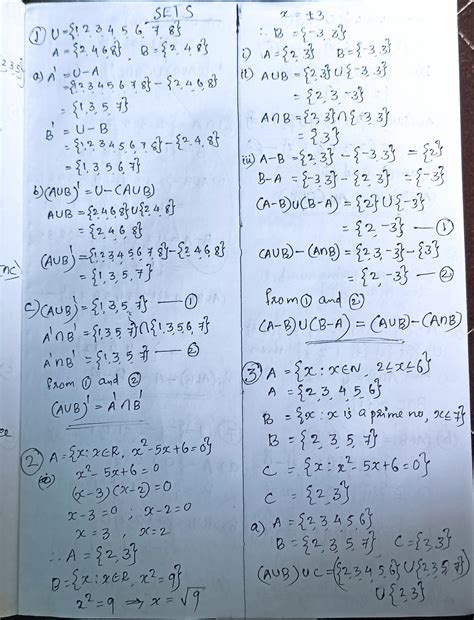 SETS
① U={1,2,3,4,5,6,7,8}
A={2,4,6,8} B={2,4,8}
a) A' = U-A
={1,2,3,4,5,6,7,8}-{2,4,6,8}
={1,3,5,7}
B' = U-B
={1,2,3,4,5,6,7,8}-{2,4,8}
={1,3,5,6,7}
b)(A∪B)' = U-(A∪B)
A∪B = {2,4,6,8}∪{2,4,8}
= {2,4,6,8}
(A∪B)' = {1,2,3,4,5,6,7,8}-{2,4,6,8}
= {1,3,5,7}
c) (A∪B)' = {1,3,5,7} —①
A'∩B' = {1,3,5,7}∩{1,3,5,6,7}
A'∩B' = {1,3,5,7} —②
from ① and ②
(A∪B)' = A'∩B'
② A={x:x∈R, x²-5x+6=0}
x²-5x+6=0
(x-3)(x-2)=0
x-3=0 ; x-2=0
x=3 , x=2
∴ A={2,3}
B={x:x∈R, x²=9}
x²=9 ⇒ x=√9
x=±3
∴ B={-3,3}
i) A={2,3} B={-3,3}
ii) A∪B={2,3}∪{-3,3}
={2,3,-3}
A∩B={2,3}∩{-3,3}
={3}
iii) A-B={2,3}-{-3,3} ={2}
B-A={-3,3}-{2,3} ={-3}
(A-B)∪(B-A)={2}∪{-3}
={2,-3} —①
(A∪B)-(A∩B)={2,3,-3}-{3}
={2,-3} —②
from ① and ②
(A-B)∪(B-A)=(A∪B)-(A∩B)
③ A={x:x∈N, 2≤x≤6}
A={2,3,4,5,6}
B={x:x is a prime no, x≤7}
B={2,3,5,7}
C={x:x²-5x+6=0}
C={2,3}
a) A={2,3,4,5,6}
B={2,3,5,7} C={2,3}
(A∪B)∪C=({2,3,4,5,6}∪{2,3,5,7})
∪{2,3}